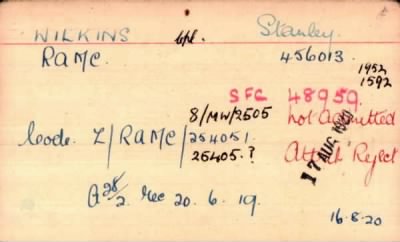 WILKINS Cpl. Stanley
RAMC. 456013.
1952
1592
SFC 48959.
8/MW/2505 not admitted
Code. Z/RAMC/254051.
25405.? Attach Reject
17 AUG 1920
A 28/2. Rec 20. 6. 19.
16-8-20